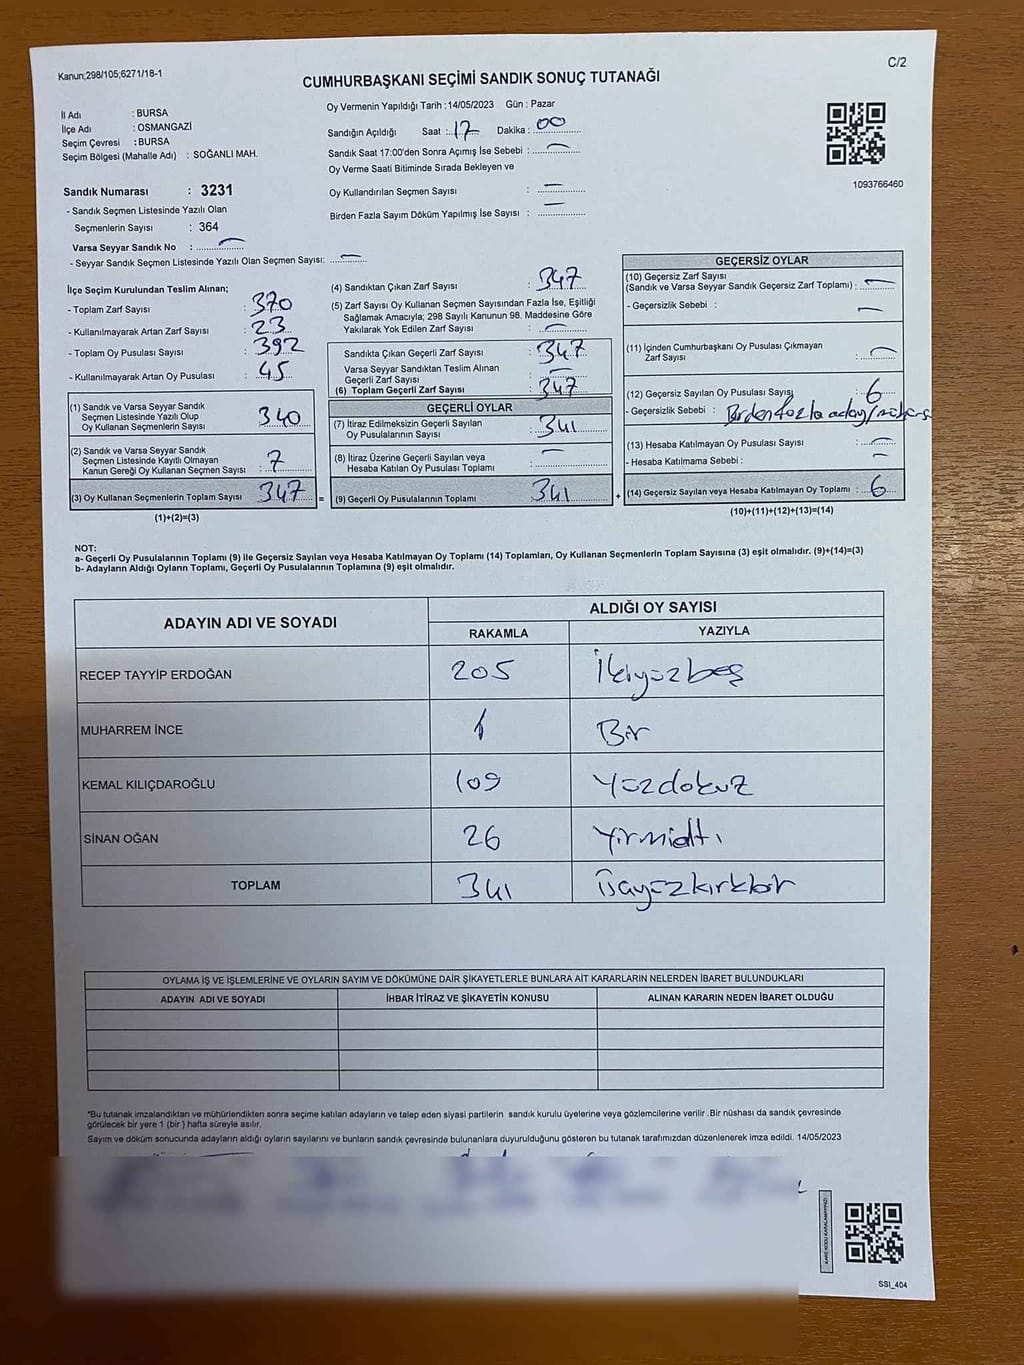 Kanun;298/105;6271/18-1
C/2
CUMHURBAŞKANI SEÇİMİ SANDIK SONUÇ TUTANAĞI
İl Adı : BURSA
İlçe Adı : OSMANGAZİ
Seçim Çevresi : BURSA
Seçim Bölgesi (Mahalle Adı) : SOĞANLI MAH.
Oy Vermenin Yapıldığı Tarih : 14/05/2023 Gün : Pazar
Sandığın Açıldığı Saat : 17 Dakika : 00
Sandık Saat 17:00'den Sonra Açımış İse Sebebi : —
Oy Verme Saati Bitiminde Sırada Bekleyen ve
Oy Kullandırılan Seçmen Sayısı : —
Birden Fazla Sayım Döküm Yapılmış İse Sayısı : —
1093766460
Sandık Numarası : 3231
- Sandık Seçmen Listesinde Yazılı Olan
Seçmenlerin Sayısı : 364
Varsa Seyyar Sandık No : —
- Seyyar Sandık Seçmen Listesinde Yazılı Olan Seçmen Sayısı: —
İlçe Seçim Kurulundan Teslim Alınan;
- Toplam Zarf Sayısı : 370
- Kullanılmayarak Artan Zarf Sayısı : 23
- Toplam Oy Pusulası Sayısı : 392
- Kullanılmayarak Artan Oy Pusulası : 45
(1) Sandık ve Varsa Seyyar Sandık
Seçmen Listesinde Yazılı Olup
Oy Kullanan Seçmenlerin Sayısı : 340
(2) Sandık ve Varsa Seyyar Sandık
Seçmen Listesinde Kayıtlı Olmayan
Kanun Gereği Oy Kullanan Seçmen Sayısı : 7
(3) Oy Kullanan Seçmenlerin Toplam Sayısı : 347
(1)+(2)=(3)
(4) Sandıktan Çıkan Zarf Sayısı : 347
(5) Zarf Sayısı Oy Kullanan Seçmen Sayısından Fazla İse, Eşitliği
Sağlamak Amacıyla; 298 Sayılı Kanunun 98. Maddesine Göre
Yakılarak Yok Edilen Zarf Sayısı : —
Sandıkta Çıkan Geçerli Zarf Sayısı : 347
Varsa Seyyar Sandıktan Teslim Alınan
Geçerli Zarf Sayısı : —
(6) Toplam Geçerli Zarf Sayısı : 347
GEÇERLİ OYLAR
(7) İtiraz Edilmeksizin Geçerli Sayılan
Oy Pusulalarının Sayısı : 341
(8) İtiraz Üzerine Geçerli Sayılan veya
Hesaba Katılan Oy Pusulası Toplamı : —
= (9) Geçerli Oy Pusulalarının Toplamı : 341
GEÇERSİZ OYLAR
(10) Geçersiz Zarf Sayısı
(Sandık ve Varsa Seyyar Sandık Geçersiz Zarf Toplamı) : —
- Geçersizlik Sebebi : —
(11) İçinden Cumhurbaşkanı Oy Pusulası Çıkmayan
Zarf Sayısı : —
(12) Geçersiz Sayılan Oy Pusulası Sayısı : 6
- Geçersizlik Sebebi : Birden fazla aday/mühür
(13) Hesaba Katılmayan Oy Pusulası Sayısı : —
- Hesaba Katılmama Sebebi : —
+ (14) Geçersiz Sayılan veya Hesaba Katılmayan Oy Toplamı : 6
(10)+(11)+(12)+(13)=(14)
NOT:
a- Geçerli Oy Pusulalarının Toplamı (9) ile Geçersiz Sayılan veya Hesaba Katılmayan Oy Toplamı (14) Toplamları, Oy Kullanan Seçmenlerin Toplam Sayısına (3) eşit olmalıdır. (9)+(14)=(3)
b- Adayların Aldığı Oyların Toplamı, Geçerli Oy Pusulalarının Toplamına (9) eşit olmalıdır.
ADAYIN ADI VE SOYADI
ALDIĞI OY SAYISI
RAKAMLA YAZIYLA
RECEP TAYYİP ERDOĞAN 205 İkiyüzbeş
MUHARREM İNCE 1 Bir
KEMAL KILIÇDAROĞLU 109 Yüzdokuz
SİNAN OĞAN 26 Yirmialtı
TOPLAM 341 Üçyüzkırkbir
OYLAMA İŞ VE İŞLEMLERİNE VE OYLARIN SAYIM VE DÖKÜMÜNE DAİR ŞİKAYETLERLE BUNLARA AİT KARARLARIN NELERDEN İBARET BULUNDUKLARI
ADAYIN ADI VE SOYADI İHBAR İTİRAZ VE ŞİKAYETİN KONUSU ALINAN KARARIN NEDEN İBARET OLDUĞU
"Bu tutanak imzalandıktan ve mühürlendikten sonra seçime katılan adayların ve talep eden siyasi partilerin sandık kurulu üyelerine veya gözlemcilerine verilir .Bir nüshası da sandık çevresinde
görülecek bir yere 1 (bir ) hafta süreyle asılır.
Sayım ve döküm sonucunda adayların aldığı oyların sayılarını ve bunların sandık çevresinde bulunanlara duyurulduğunu gösteren bu tutanak tarafımızdan düzenlenerek imza edildi. 14/05/2023
SSI_404